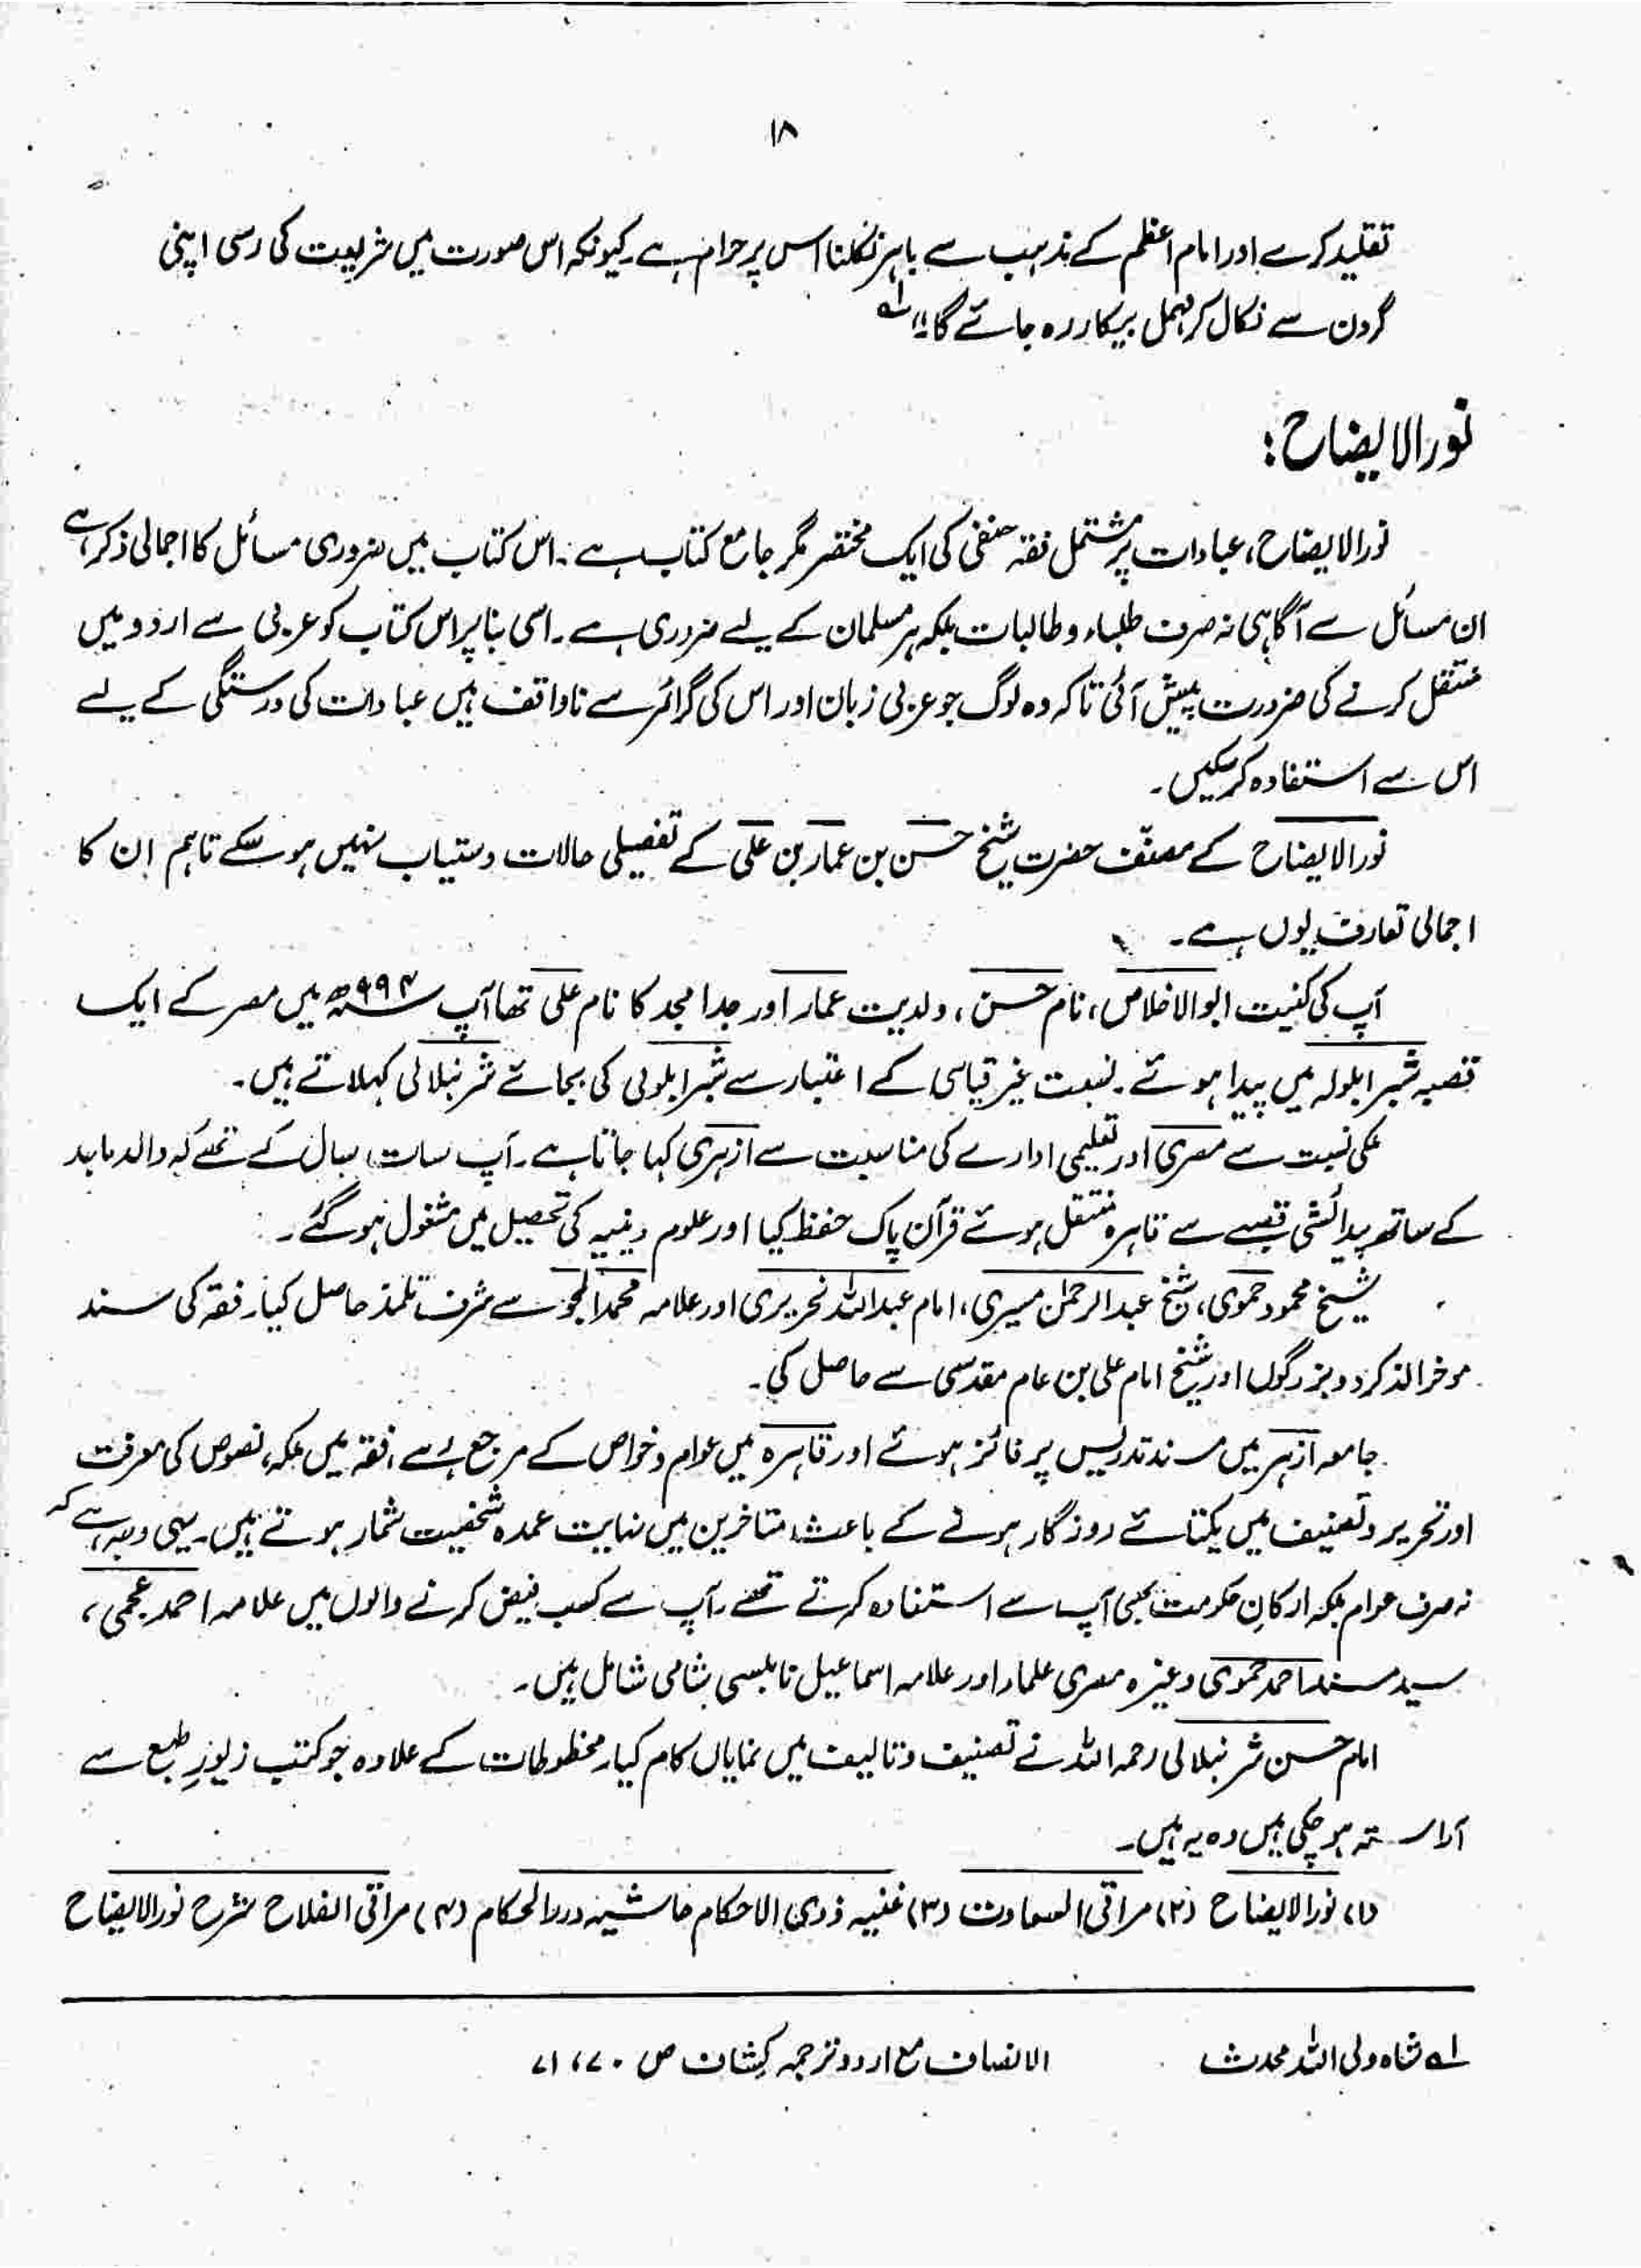 ۱۸
تقلید کرے اور امام اعظم کے مذہب سے باہر نکلنا اس پر حرام ہے۔ کیونکہ اس صورت میں شریعت کی رسی اپنی
گردن سے نکال کر مہمل بیکار رہ جائے گا"۱؎
نورالایضاح:
نورالایضاح، عبادات پر مشتمل فقہ حنفی کی ایک مختصر مگر جامع کتاب ہے۔ اس کتاب میں ضروری مسائل کا اجمالی ذکر ہے
ان مسائل سے آگاہی نہ صرف طلباء و طالبات بلکہ ہر مسلمان کے لیے ضروری ہے۔ اسی بنا پر اس کتاب کو عربی سے اردو میں
منتقل کرنے کی ضرورت پیش آئی تاکہ وہ لوگ جو عربی زبان اور اس کی گرائمر سے ناواقف ہیں عبادات کی درستگی کے لیے
اس سے استفادہ کر سکیں۔
نورالایضاح کے مصنّف حضرت شیخ حسن بن عمار بن علی کے تفصیلی حالات دستیاب نہیں ہو سکے تاہم ان کا
اجمالی تعارف یوں ہے۔
آپ کی کنیت ابوالاخلاص، نام حسن، ولدیت عمار اور جدامجد کا نام علی تھا آپ ۹۹۴ھ میں مصر کے ایک
قصبہ شبرابلولہ میں پیدا ہوئے۔ نسبت غیر قیاسی کے اعتبار سے شبرابلولی کی بجائے شرنبلالی کہلاتے ہیں۔
ملکی نسبت سے مصری اور تعلیمی ادارے کی مناسبت سے ازہری کہا جاتا ہے۔ آپ سات سال کے تھے کہ والد ماجد
کے ساتھ پیدائشی قصبے سے قاہرہ منتقل ہوئے قرآن پاک حفظ کیا اور علوم دینیہ کی تحصیل میں مشغول ہو گئے۔
شیخ محمود حموی، شیخ عبدالرحمٰن مسیری، امام عبداللہ نحریری اور علامہ محمد المجو سے شرف تلمذ حاصل کیا۔ فقہ کی سند
موخرالذکر دو بزرگوں اور شیخ امام علی بن عام مقدسی سے حاصل کی۔
جامعہ ازہر میں مسند تدریس پر فائز ہوئے اور قاہرہ میں عوام و خواص کے مرجع رہے، فقہ میں ملکہ، نصوص کی معرفت
اور تحریر و تصنیف میں یکتائے روزگار ہونے کے باعث متاخرین میں نہایت عمدہ شخصیت شمار ہوتے ہیں۔ یہی وجہ ہے کہ
نہ صرف عوام بلکہ ارکانِ حکومت بھی آپ سے استفادہ کرتے تھے۔ آپ سے کسب فیض کرنے والوں میں علامہ احمد عجمی،
سید سند احمد حموی وغیرہ مصری علماء اور علامہ اسماعیل نابلسی شامی شامل ہیں۔
امام حسن شرنبلالی رحمہ اللہ نے تصنیف و تالیف میں نمایاں کام کیا۔ مخطوطات کے علاوہ جو کتب زیورِ طبع سے
آراستہ ہو چکی ہیں وہ یہ ہیں۔
(۱) نورالایضاح (۲) مراقی السعادت (۳) غنیہ ذوی الاحکام حاشیہ دررالحکام (۴) مراقی الفلاح شرح نورالایضاح
۱؎ شاہ ولی اللہ محدث الانصاف مع اردو ترجمہ کشاف ص ۷۰، ۷۱